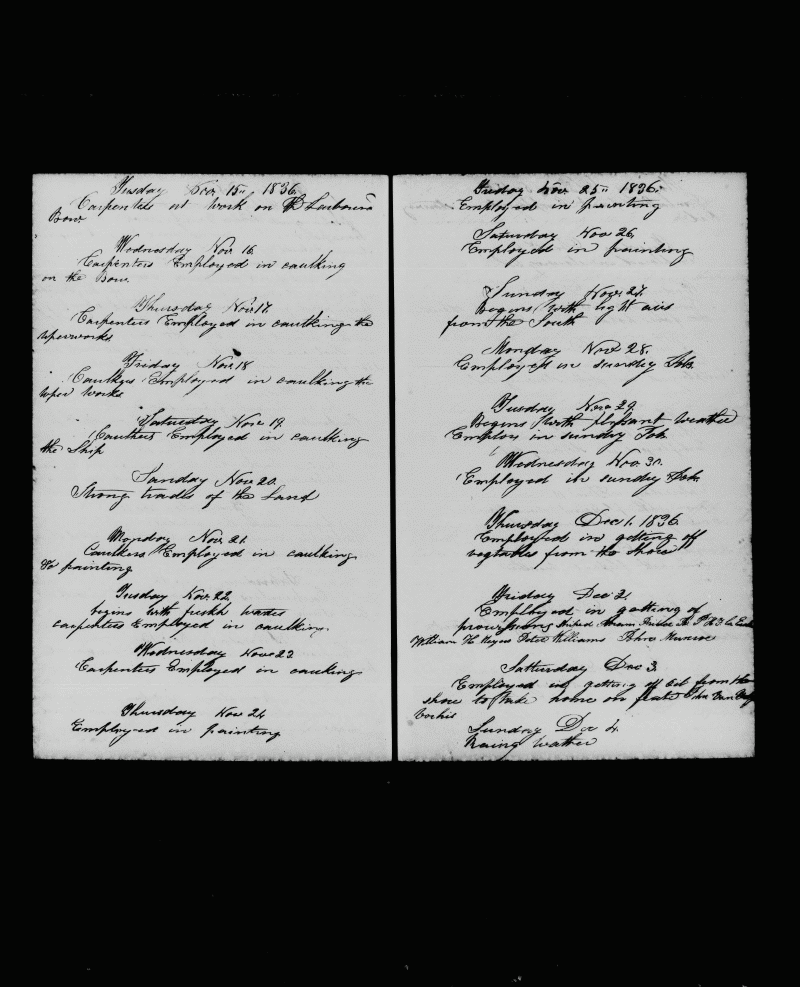 Tuesday Nov 15" 1836.
Carpenters at work on Larbourd
Bow
Wednesday Nov 16.
Carpenters Employed in caulking
on the Bow.
Thursday Nov 17.
Carpenters Employed in caulking the
uperworks
Friday Nov 18
Caulkers Employed in caulking the
uper works
Saturday Nov 19.
Caulkers Employed in caulking
the Ship
Sunday Nov 20.
Strong trades of the Land
Monday Nov 21.
Caulkers Employed in caulking
& painting
Tuesday Nov. 22.
begins with
carpenters Employed in caulking.
Wednesday Nov 23
Carpenters Employed in caulking
Thursday Nov 24
Employed in painting
Friday Nov 25" 1836.
Employed in painting
Saturday Nov 26.
Employed in painting
Sunday Nov 27.
Begins with light airs
from the South
Monday Nov 28.
Employed in sundry Jobs.
Tuesday Nov 29.
Begins with plesant weather
Employ in sundry Job
Wednesday Nov 30.
Employed in sundry Jobs
Thursday Dec 1. 1836.
Employed in getting off
vegtables from the Shore
Friday Dec 2.
Employed in getting of
provissions
William H Peter Williams Munroe
Satturday Dec 3.
Employed in getting of from the
shore to take home on Van
Sunday Dec 4.
Raing wather